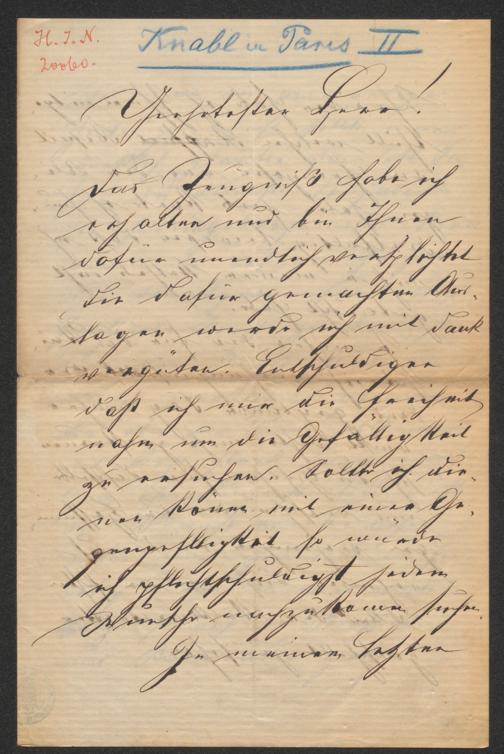 H. I. N.
20060.
Knabl in Paris II
Geehrtester Herr!
Das Zeugniß habe ich
erhalten und bin Ihnen
dafür unendlich verpflichtet
die dafür gemachten Aus-
lagen werde ich mit Dank
vergüten. Entschuldigen
daß ich mir die Freiheit
nahm um die Gefälligkeit
zu ersuchen. Sollte ich die-
nen könen mit einer Ge-
gengefälligkeit so würde
ich pflichtschuldigst jedem
Wunsche nachzukomen suchen.
In meinem letzten